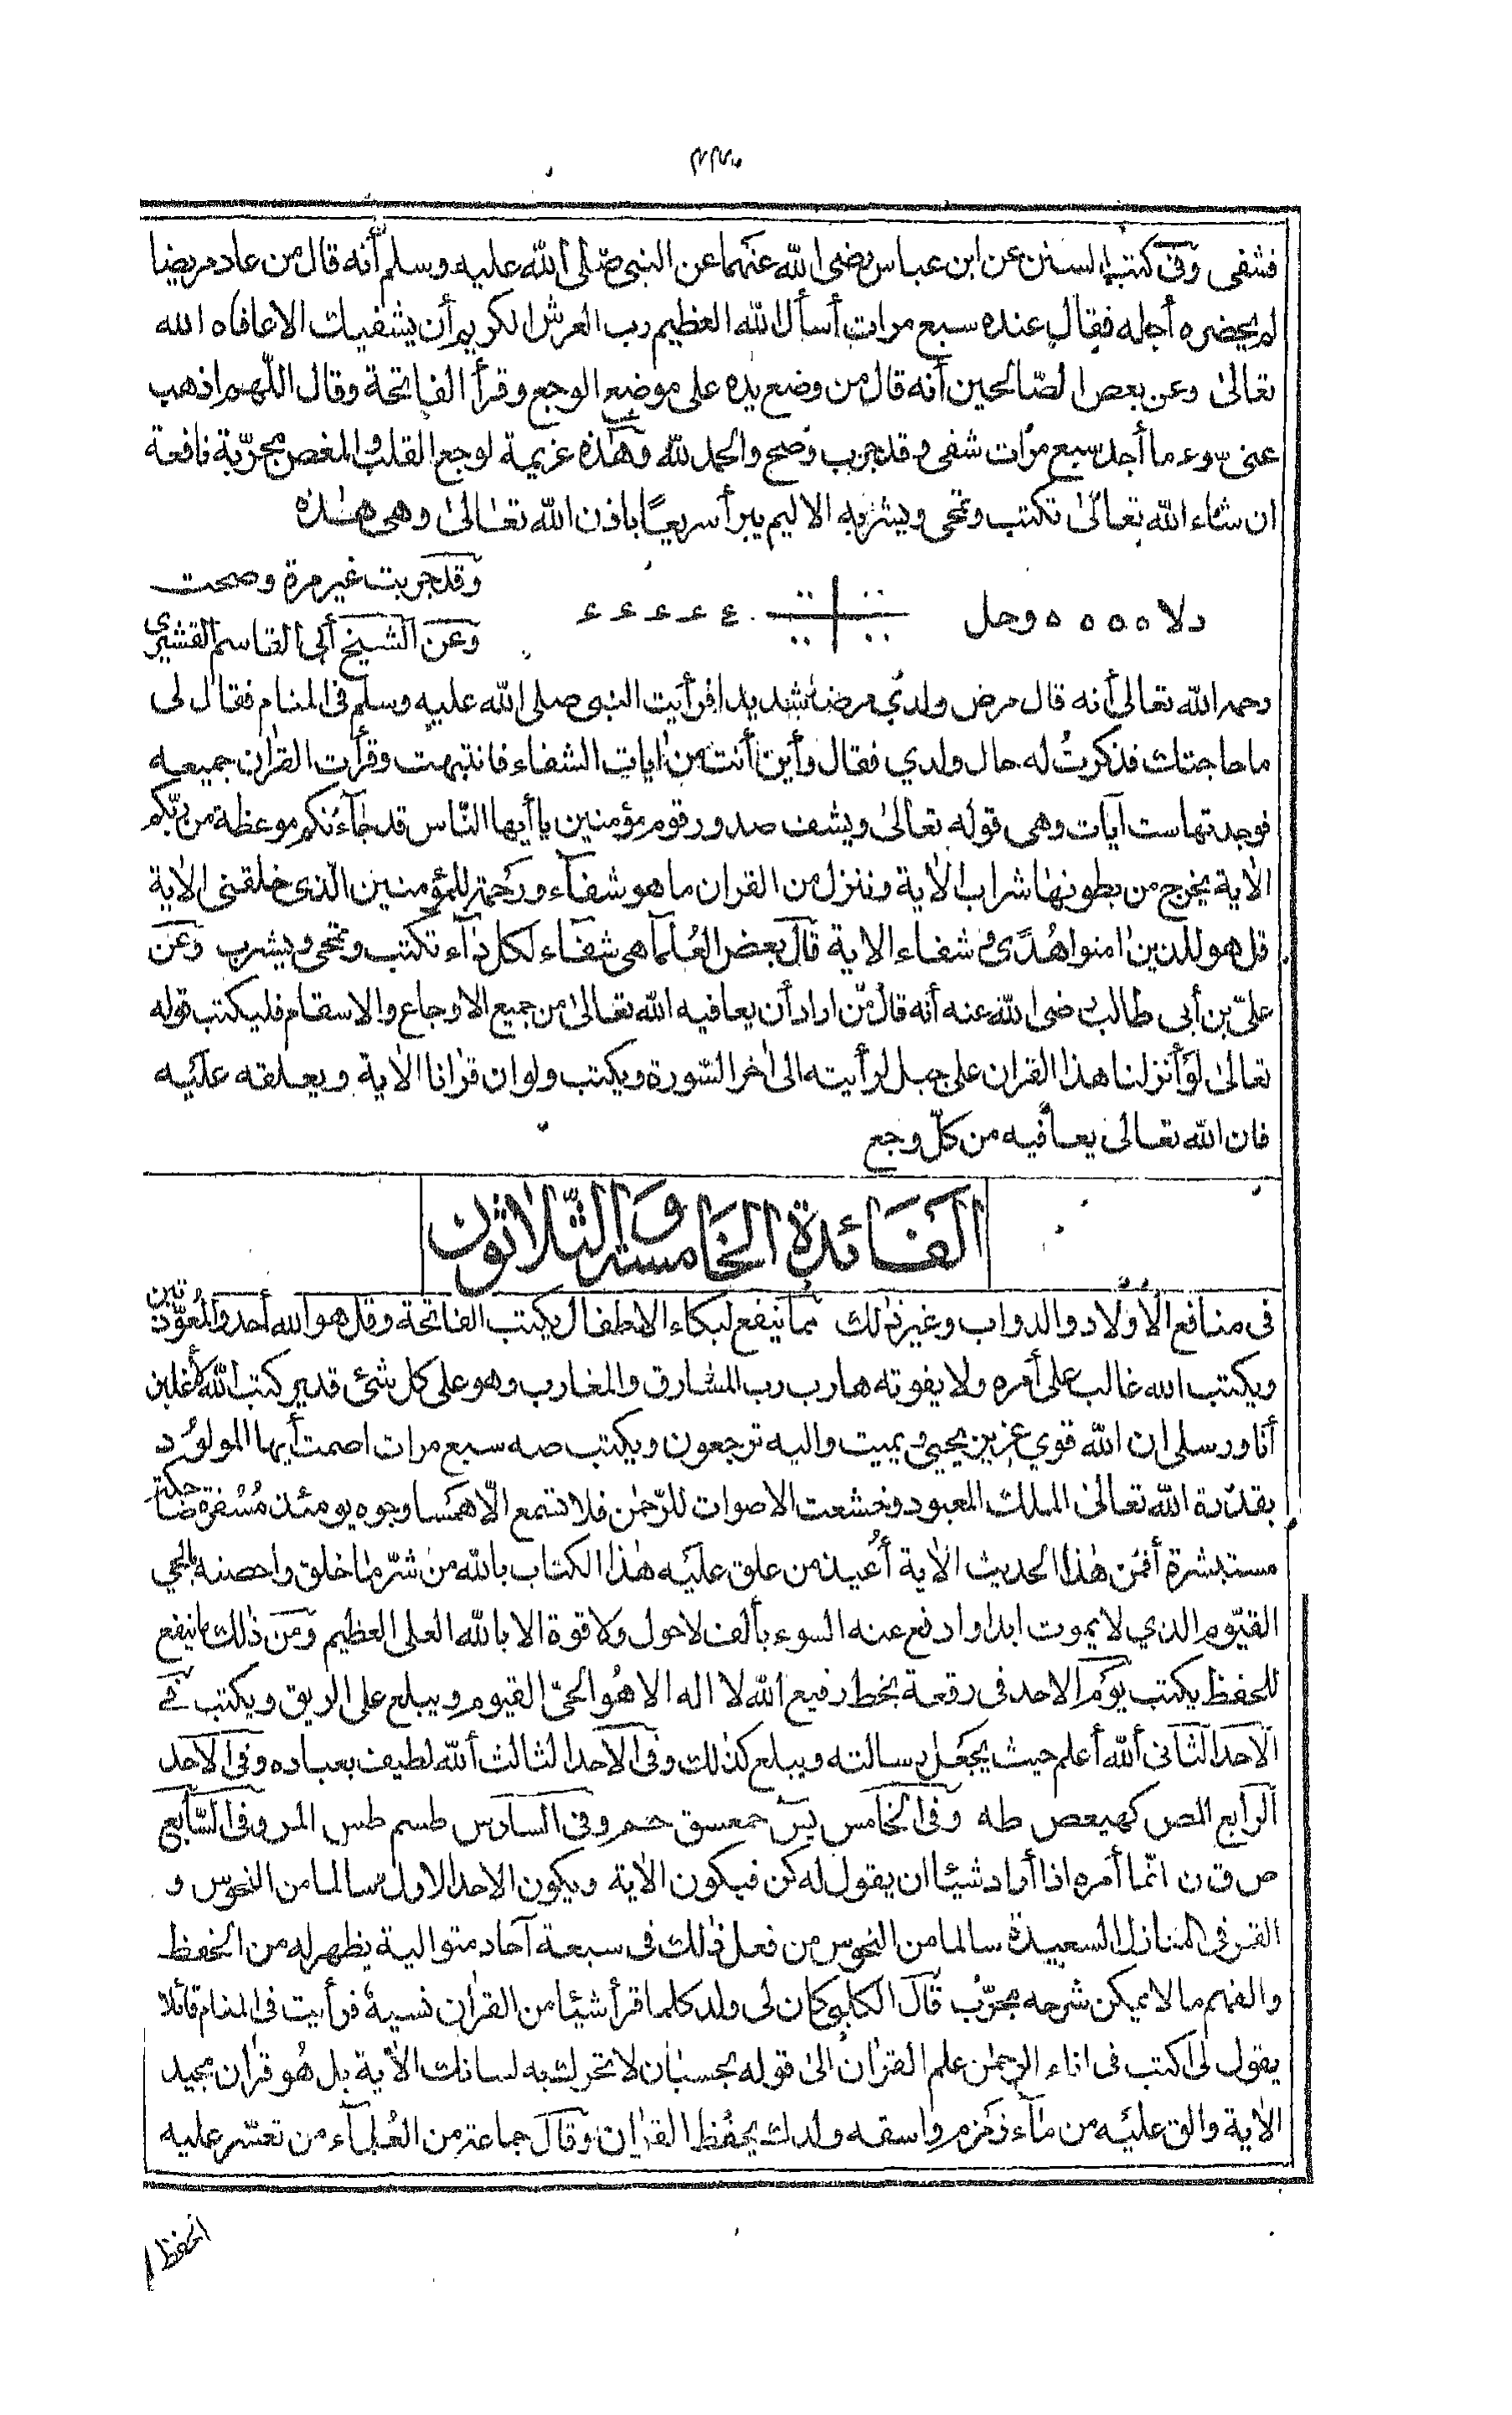 فشفى وفى كتب السنن عن ابن عباس رضى الله عنهما عن النبى صلى الله عليه وسلم أنه قال من عاد مريضا
لم يحضره أجله فقال عنده سبع مرات أسأل الله العظيم رب العرش الكريم أن يشفيك الا عافاه الله
تعالىٰ وعن بعض الصّالحين أنه قال من وضع يده على موضع الوجع وقرأ الفاتحة وقال اللّهم اذهب
عنى سوء ما أجد سبع مرات شفى وقد جرب وصح والحمد لله وهٰذه عزيمة لوجع القلب والمغص مجرّبة نافعة
ان شاء الله تعالىٰ تكتب وتمحى ويشربه الاليم يبرأ سريعًا باذن الله تعالىٰ وهى هٰذه
دلا ٥ ٥ ٥ ٥ وحل ع ع ع ع ع
وقد جربت غير مرة وصحت
وعن الشيخ أبى القاسم القشيرى
رحمه الله تعالى أنه قال مرض ولدي مرضا شديدا فرأيت النبى صلى الله عليه وسلم فى المنام فقال لى
ما حاجتك فذكرتُ له حال ولدي فقال وأين أنت من اٰيات الشفاء فانتبهت وقرأت القراٰن جميعه
فوجدتها ست آيات وهى قوله تعالىٰ ويشف صدور قوم مؤمنين يا أيها النّاس قد جآءتكم موعظة من ربّكم
الاٰية يخرج من بطونها شراب الاٰية وننزل من القران ما هو شفآء ورحمة للمؤمنين الّذى خلقنى الاٰية
قل هو للذين اٰمنوا هُدًى وشفاء الاية قال بعض العُلمآ هى شفآء لكل دآء تكتب وتمحى ويشرب وعن
علىّ بن أبى طالب رضى الله عنه أنه قال من اراد أن يعافيه الله تعالىٰ من جميع الاوجاع والاسقام فليكتب قوله
تعالىٰ لو أنزلنا هذا القران على جبل لرأيته الى اٰخر السّورة ويكتب ولو ان قراٰنا الاٰية ويعلقه عليه
فان الله تعالىٰ يعافيه من كلّ وجع
الفائدة الخامسة والثّلاثون
فى منافع الأولاد والدواب وغير ذٰلك مما ينفع لبكاء الاطفال يكتب الفاتحة وقل هو الله أحد والمعوّذتين
ويكتب الله غالب على أمره ولا يفوته هارب رب المشارق والمغارب وهو على كل شئ قدير كتب الله لأغلبن
أنا ورسلى ان الله قوي عزيز يحيى ويميت واليه ترجعون ويكتب صه سبع مرات اصمت أيها المولود
بقدرة الله تعالىٰ الملك المعبود وخشعت الاصوات للرّحمٰن فلا تسمع الّا همسا وجوه يومئذ مُسْفرة ضاحكة
مستبشرة أفمن هٰذا الحديث الاٰية أعيذ من علق عليه هٰذا الكتاب بالله من شرّ ما خلق واحصنه بالحي
القيّوم الذي لا يموت ابدا وادفع عنه السوء بألف لاحول ولا قوة الا بالله العلى العظيم ومن ذٰلك ما ينفع
للحفظ يكتب يوم الاحد فى رقعة بخط رفيع الله لا اله الا هُو الحىّ القيوم ويبلع على الريق ويكتب فى
الاحد الثانى ألله أعلم حيث يجعل رسالته ويبلع كذلك وفى الاحد الثالث ألله لطيف بعباده وفى الاحد
الرابع المص كهيعص طه وفى الخامس يس حمعسق حم وفى السادس طسم طس المر وفى السّابع
ص ق ن انّما أمره اذا أراد شيئا ان يقول له كن فيكون الاٰية ويكون الاحد الاول سالما من النحوس و
القمر فى المنازل السعيدة سالما من النحوس من فعل ذٰلك فى سبعة آحاد متوالية يظهر له من الحفظ
والفهم ما لا يمكن شرحه مجرّب قال الكلبى كان لى ولد كلما قرأ شيئا من القراٰن نسيه فرأيت فى المنام قائلا
يقول لى اكتب فى اناء الرحمٰن علم القراٰن الى قوله بحسبان لا تحرك به لسانك الاٰية بل هُو قراٰن مجيد
الاٰية والق عليه من مآء زمزم واسقه ولدك يحفظ القراٰن وقال جماعة من العُلمآء من تعسّر عليه
الحفظ